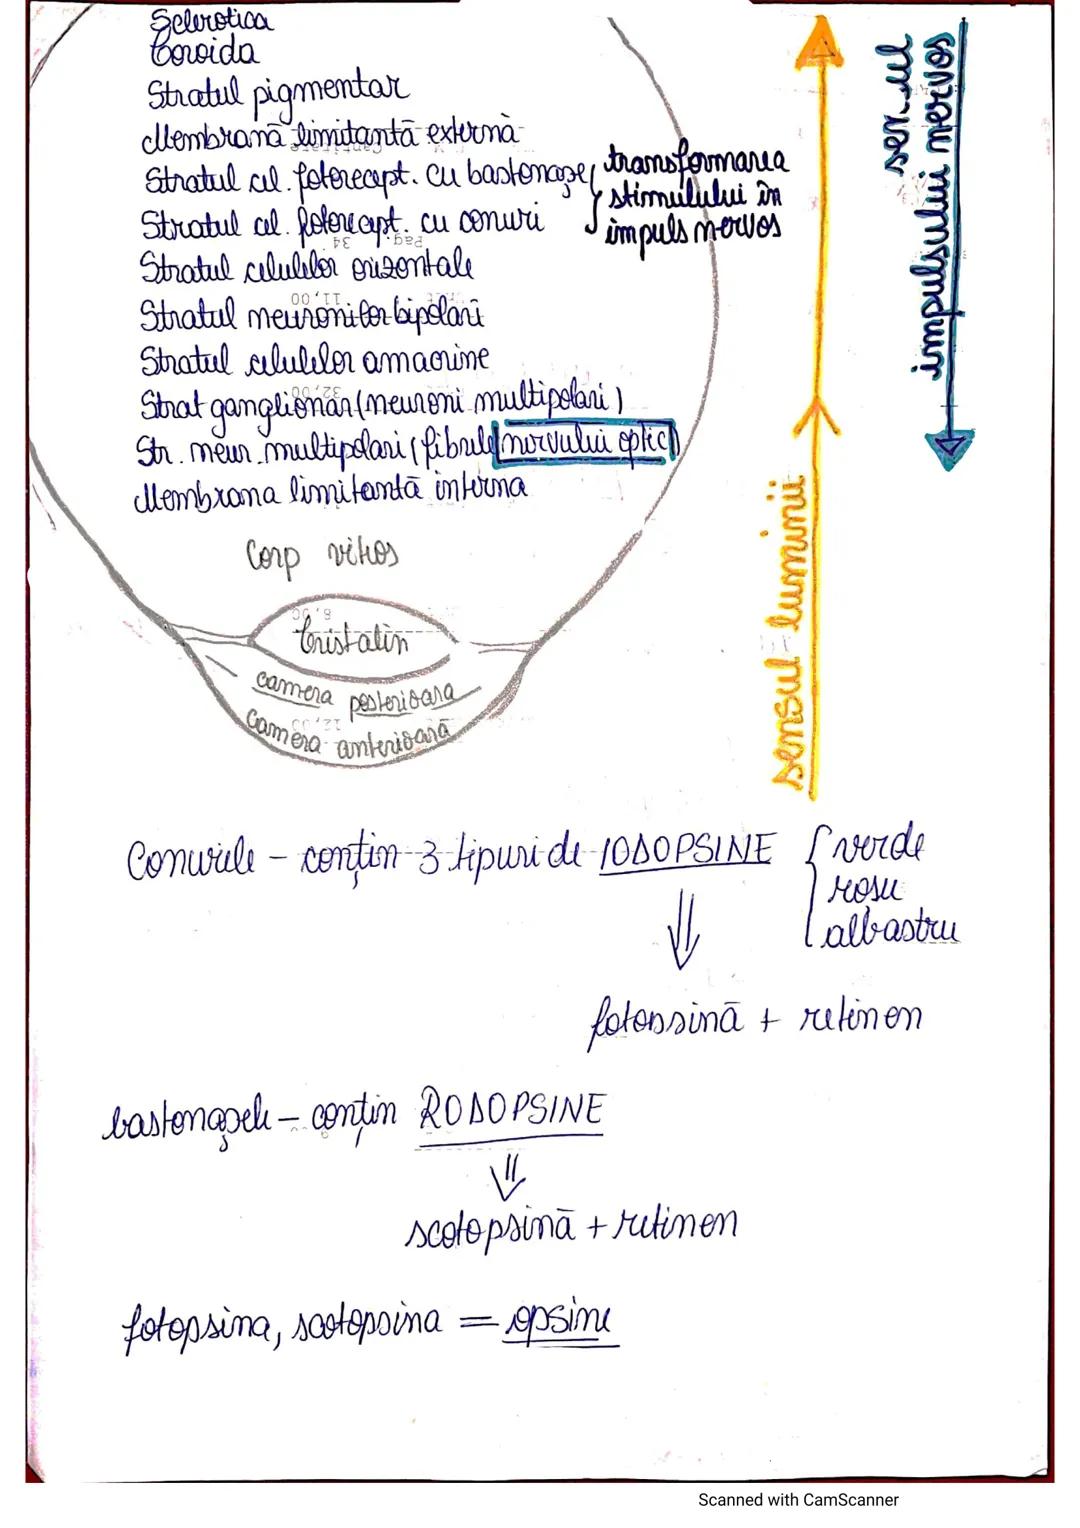 Sclerotica
Coroida
Stratul pigmentar
Membrană limitantă externă
Stratul cel. fotorecept. cu bastonașe
Stratul cel. fotorecept. cu conuri
transformarea
stimulului în
impuls nervos
Stratul celulelor orizontale
Stratul neuronilor bipolari
Stratul celulelor amacrine
Strat ganglionar (neuroni multipolari)
Str. neur. multipolari (fibrele nervului optic)
Membrana limitantă internă
Corp vitros
Cristalin
camera posterioara
Camera anterioară
sensul luminii
sensul
impulsului nervos
Conurile - conțin 3 tipuri de IODOPSINE { verde
rosu
albastru
⇓
fotopsină + retinen
bastonașele - conțin RODOPSINE
⇓
scotopsină + retinen
fotopsina, scotopsina = opsine
Scanned with CamScanner